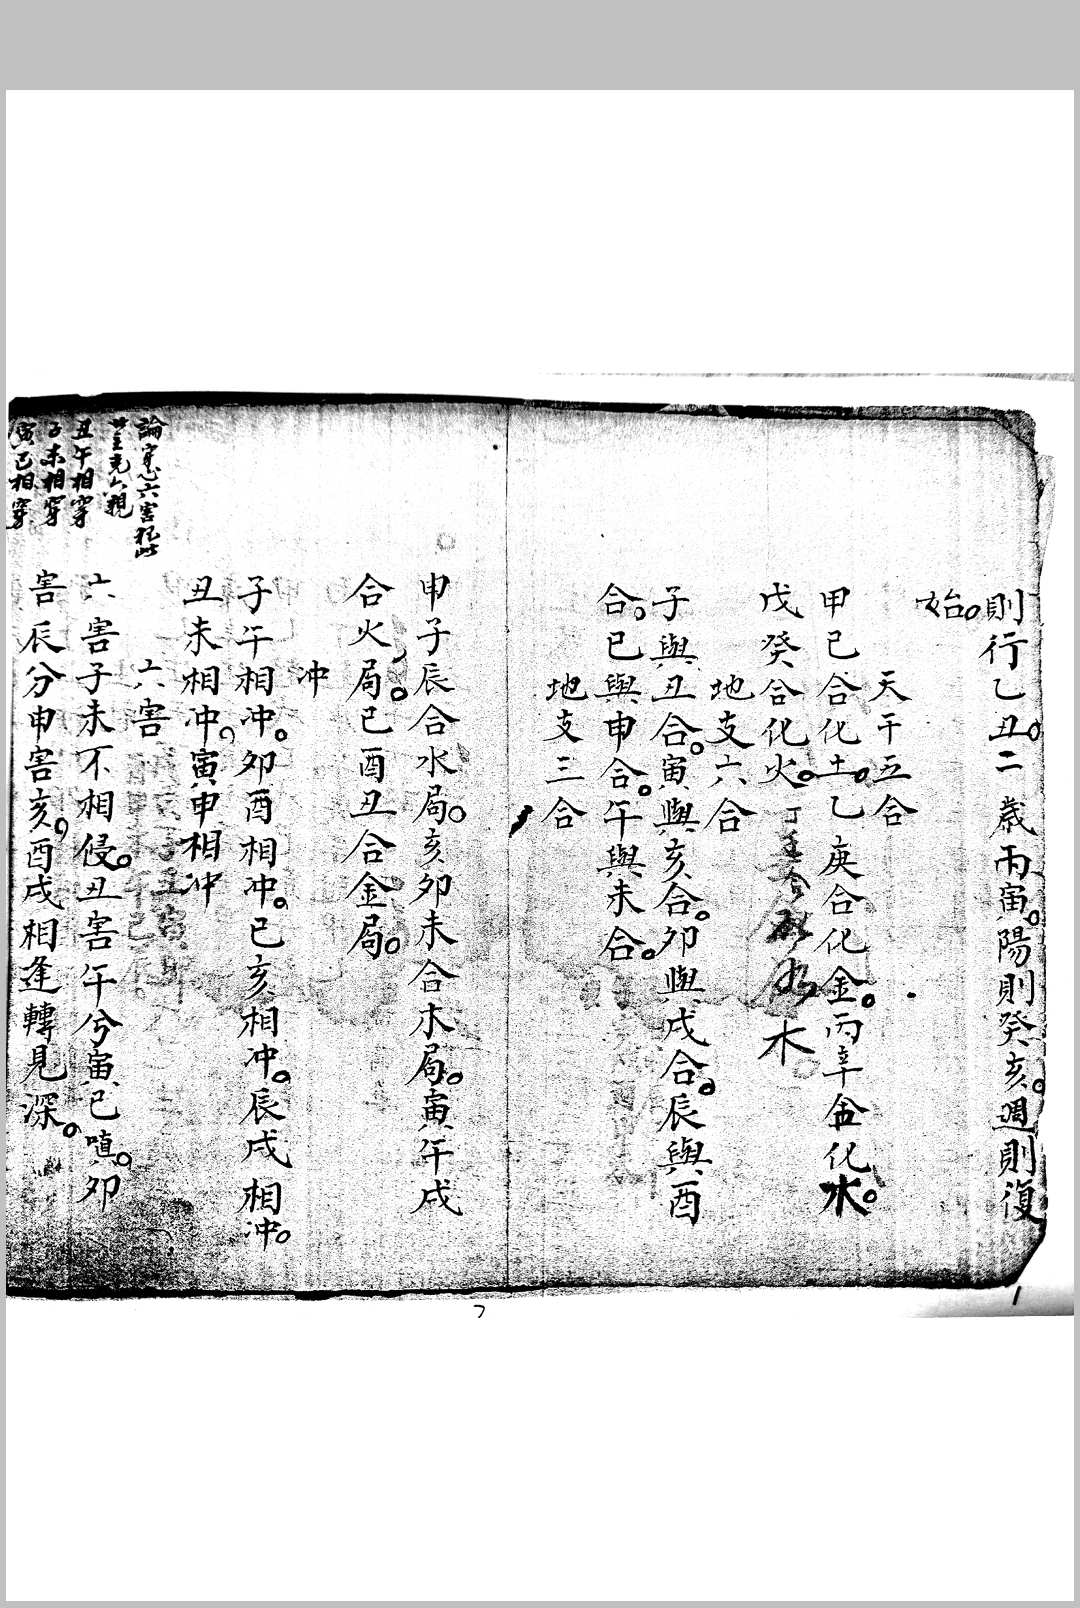 則行乙丑。二歲丙寅。陽則癸亥。週則復
始。
天干五合
甲己合化土。乙庚合化金。丙辛合化水。
戊癸合化火。丁壬合化木
地支六合
子與丑合。寅與亥合。卯與戌合。辰與酉
合。巳與申合。午與未合。
地支三合
申子辰合水局。亥卯未合木局。寅午戌
合火局。巳酉丑合金局。
冲
子午相冲。卯酉相冲。巳亥相冲。辰戌相冲。
丑未相冲。寅申相冲
六害
六害子未不相侵。丑害午兮寅巳嗔。卯
害辰兮申害亥。酉戌相逢轉見深。
論穿心六害犯此
六親
丑午相穿
子未相穿
寅巳相穿
7